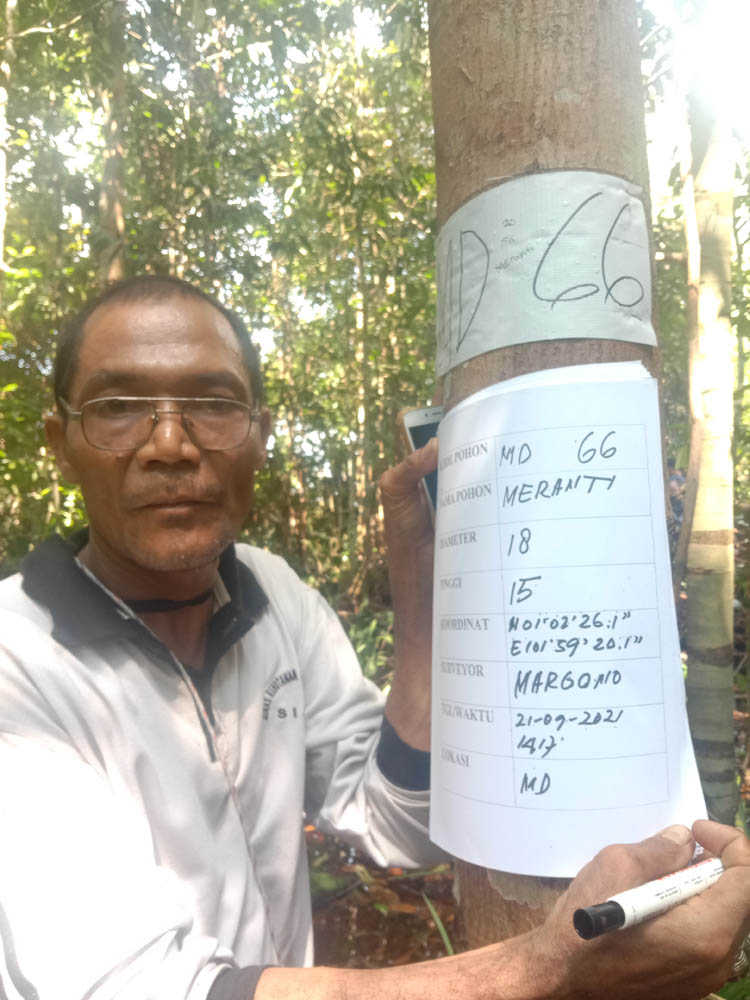 MD 66
20
56
Meranti
KODE POHON MD 66
NAMA POHON MERANTI
DIAMETER 18
TINGGI 15
KOORDINAT N 01°02'26.1"
E 101°59'20.1"
SURVEYOR MARGONO
TGL/WAKTU 21-09-2021
1417
LOKASI MD